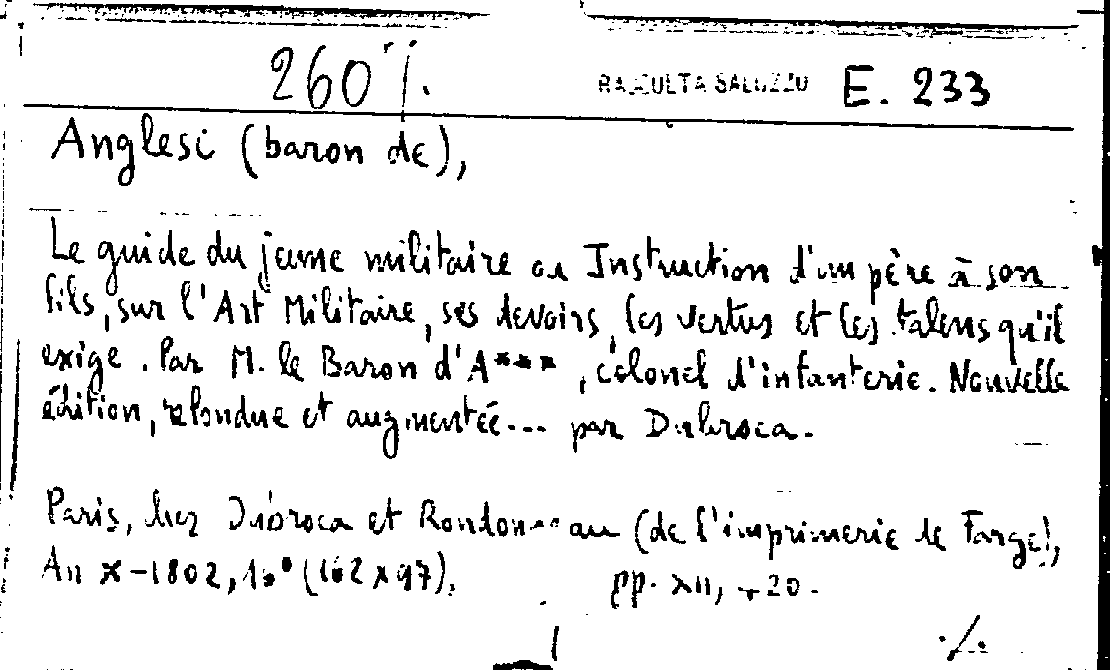 260 /.
RACCOLTA SALUZZO E. 233
Anglesi (baron de),
Le guide du jeune militaire ou Instruction d'un père à son
fils, sur l'Art Militaire, ses devoirs, les vertus et les talens qu'il
exige. Par M. le Baron d'A***, colonel d'infanterie. Nouvelle
édition, refondue et augmentée... par Dubroca.
Paris, chez Dubroca et Rondonneau (de l'imprimerie de Farge),
An X-1802, (162x97), pp. XII,
./.